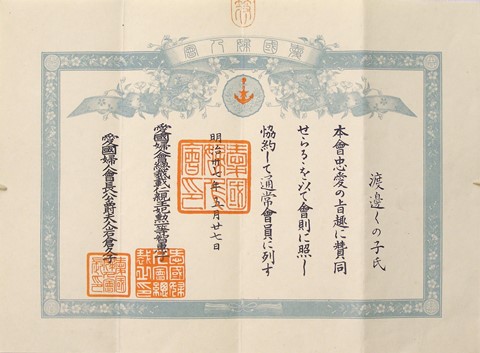 愛國婦人會
渡邊くの子氏
本會忠愛の旨趣に賛同
せらるゝを以て會則に照し
協約して通常會員に列す
明治卅七年五月廿七日
愛國婦人會總裁載仁親王妃勲二等智惠子
愛國婦人會長公爵夫人岩倉久子